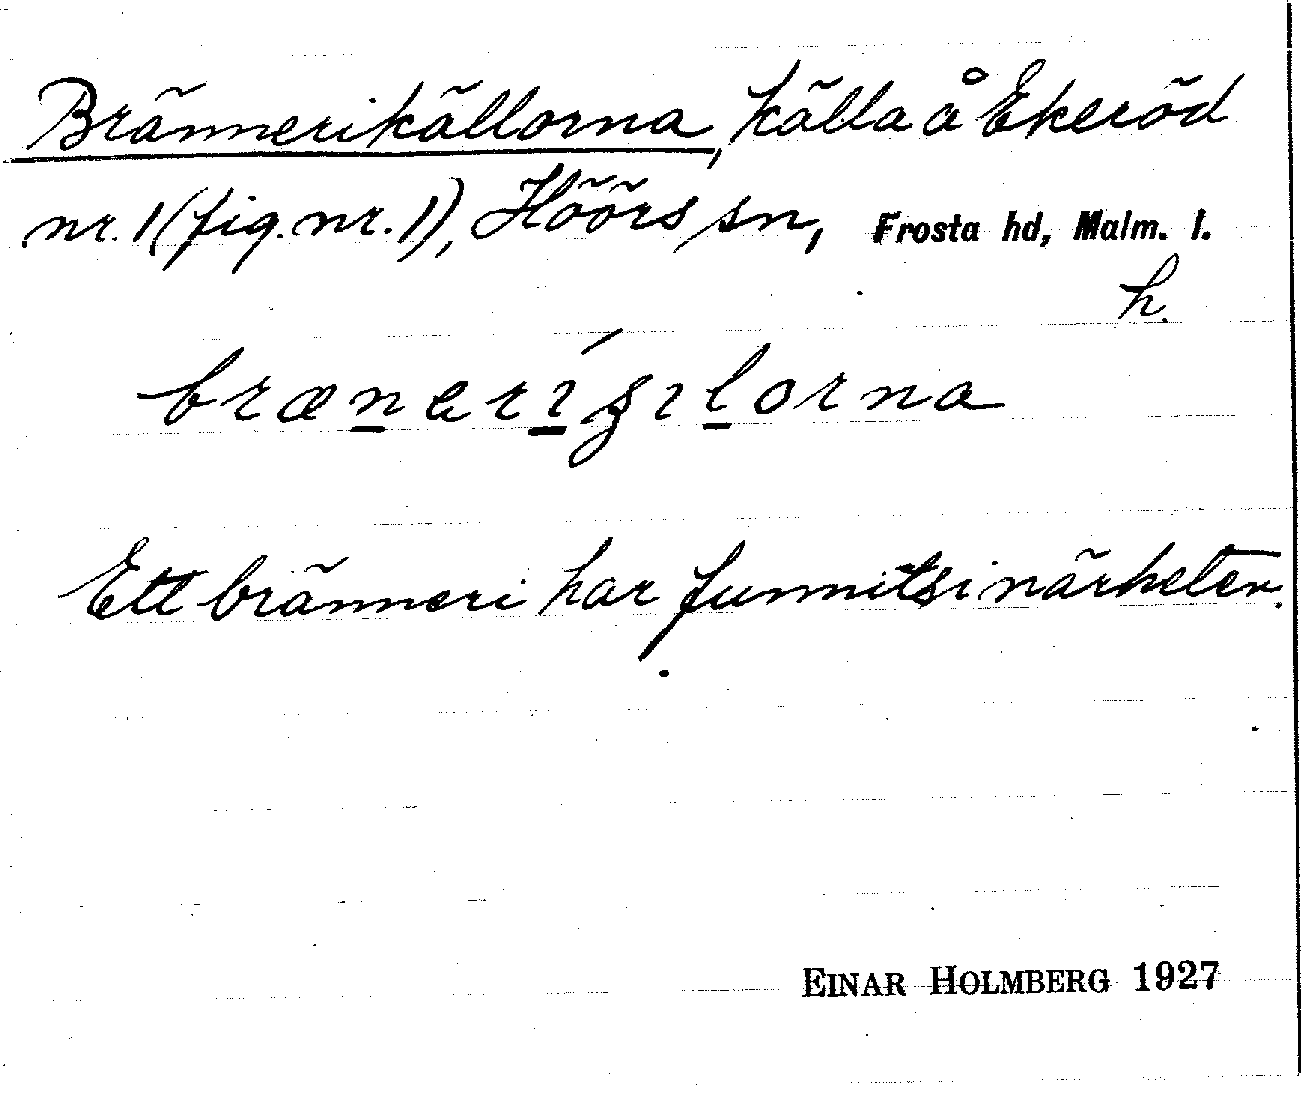 Brännerikällorna, källa å Ekeröd
nr. 1 (fig. nr. 1), Höörs sn, Frosta hd, Malm. l.
h.
Ett bränneri har funnits i närheten.
EINAR HOLMBERG 1927